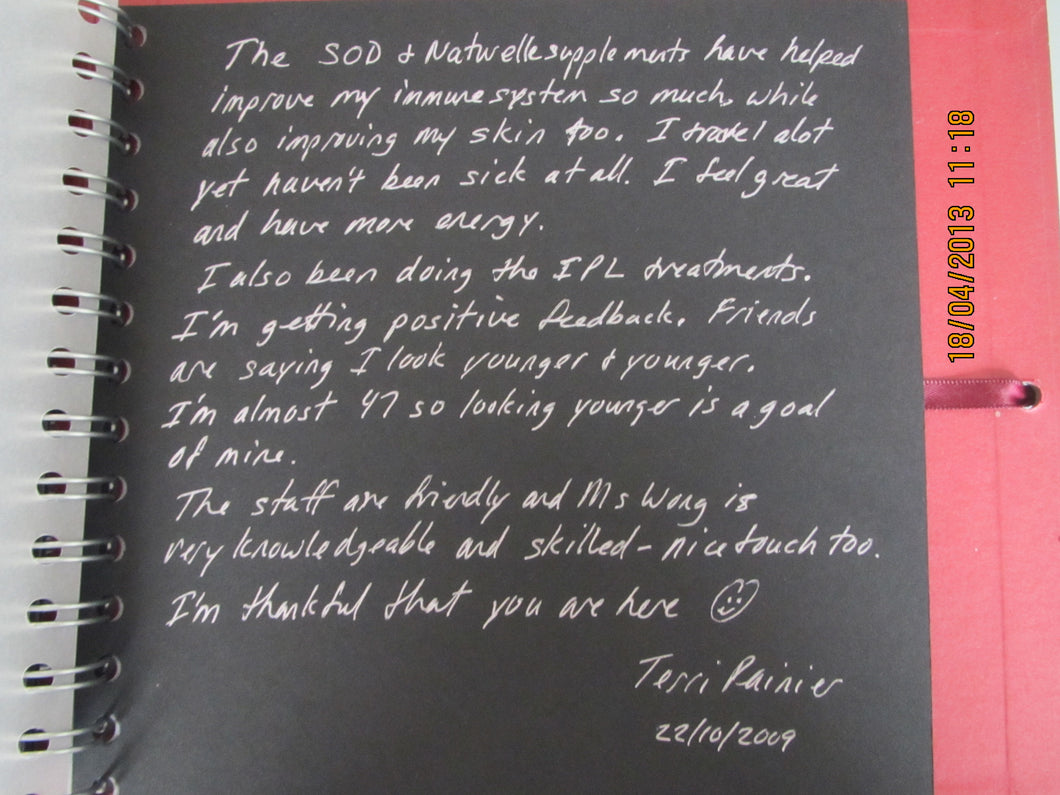 The SOD & Natwelle supplements have helped
improve my immune system so much, while
also improving my skin too. I travel alot
yet haven't been sick at all. I feel great
and have more energy.
I also been doing the IPL treatments.
I'm getting positive feedback. Friends
are saying I look younger & younger.
I'm almost 47 so looking younger is a goal
of mine.
The staff are friendly and Ms Wong is
very knowledgeable and skilled - nice touch too.
I'm thankful that you are here ☺
Terri Rainier
22/10/2009
18/04/2013 11:18